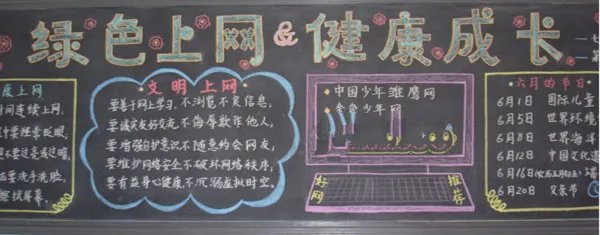 绿色上网&健康成长
康上网
时间连续上网,
中要经常眨眼,
不要过亮或过暗,
后要洗手洗脸,
擦拭屏幕。
文明上网
要善于网上学习,不浏览不良信息;
要诚实友好交流,不侮辱欺诈他人;
要增强自护意识,不随意约会网友;
要维护网络安全,不破坏网络秩序;
要有益身心健康,不沉溺虚拟时空。
中国少年雏鹰网
金色少年网
好网
推荐
六月的节日
6月1日 国际儿童
6月5日 世界环境
6月8日 世界海洋
6月12日 中国文化遗
6月16日
6月20日 父亲节